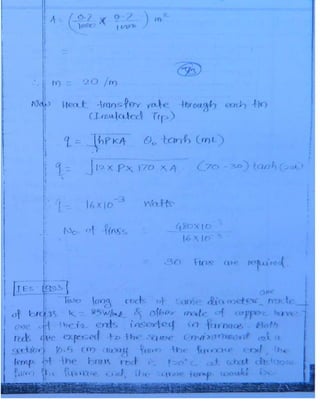 A = (0.7/1000 × 0.7/1000) m²
=
∴ m = 20 /m
Now Heat transfer rate through each fin
(Insulated Tip)
q = √hPKA θ₀ tanh (mL)
q = √12 × P × 170 × A (70 - 30) tanh
q = 16 × 10⁻³ watts
No of fins = 480×10⁻³ / 16×10⁻³
= 30 Fins are required.
IES
Two long rods of same diameter one made
of brass K = 85 W/mk & other made of copper have
one of their ends inserted in furnace. Both
rods are exposed to the same environment at a
section 10.5 cm away from the furnace end, the
temp of the brass rod is 120°C at what distance
from the furnace end, the same temp would be